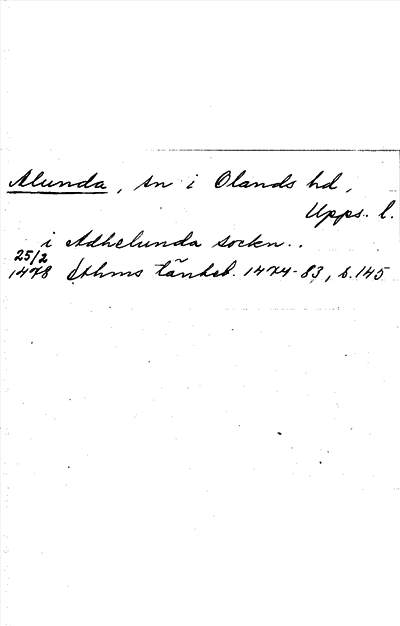 Alunda, sn i Olands hd,
Upps. l.
i Adhelunda sockn..
25/2
1478 Sthms tänkeb. 1474-83, s. 145